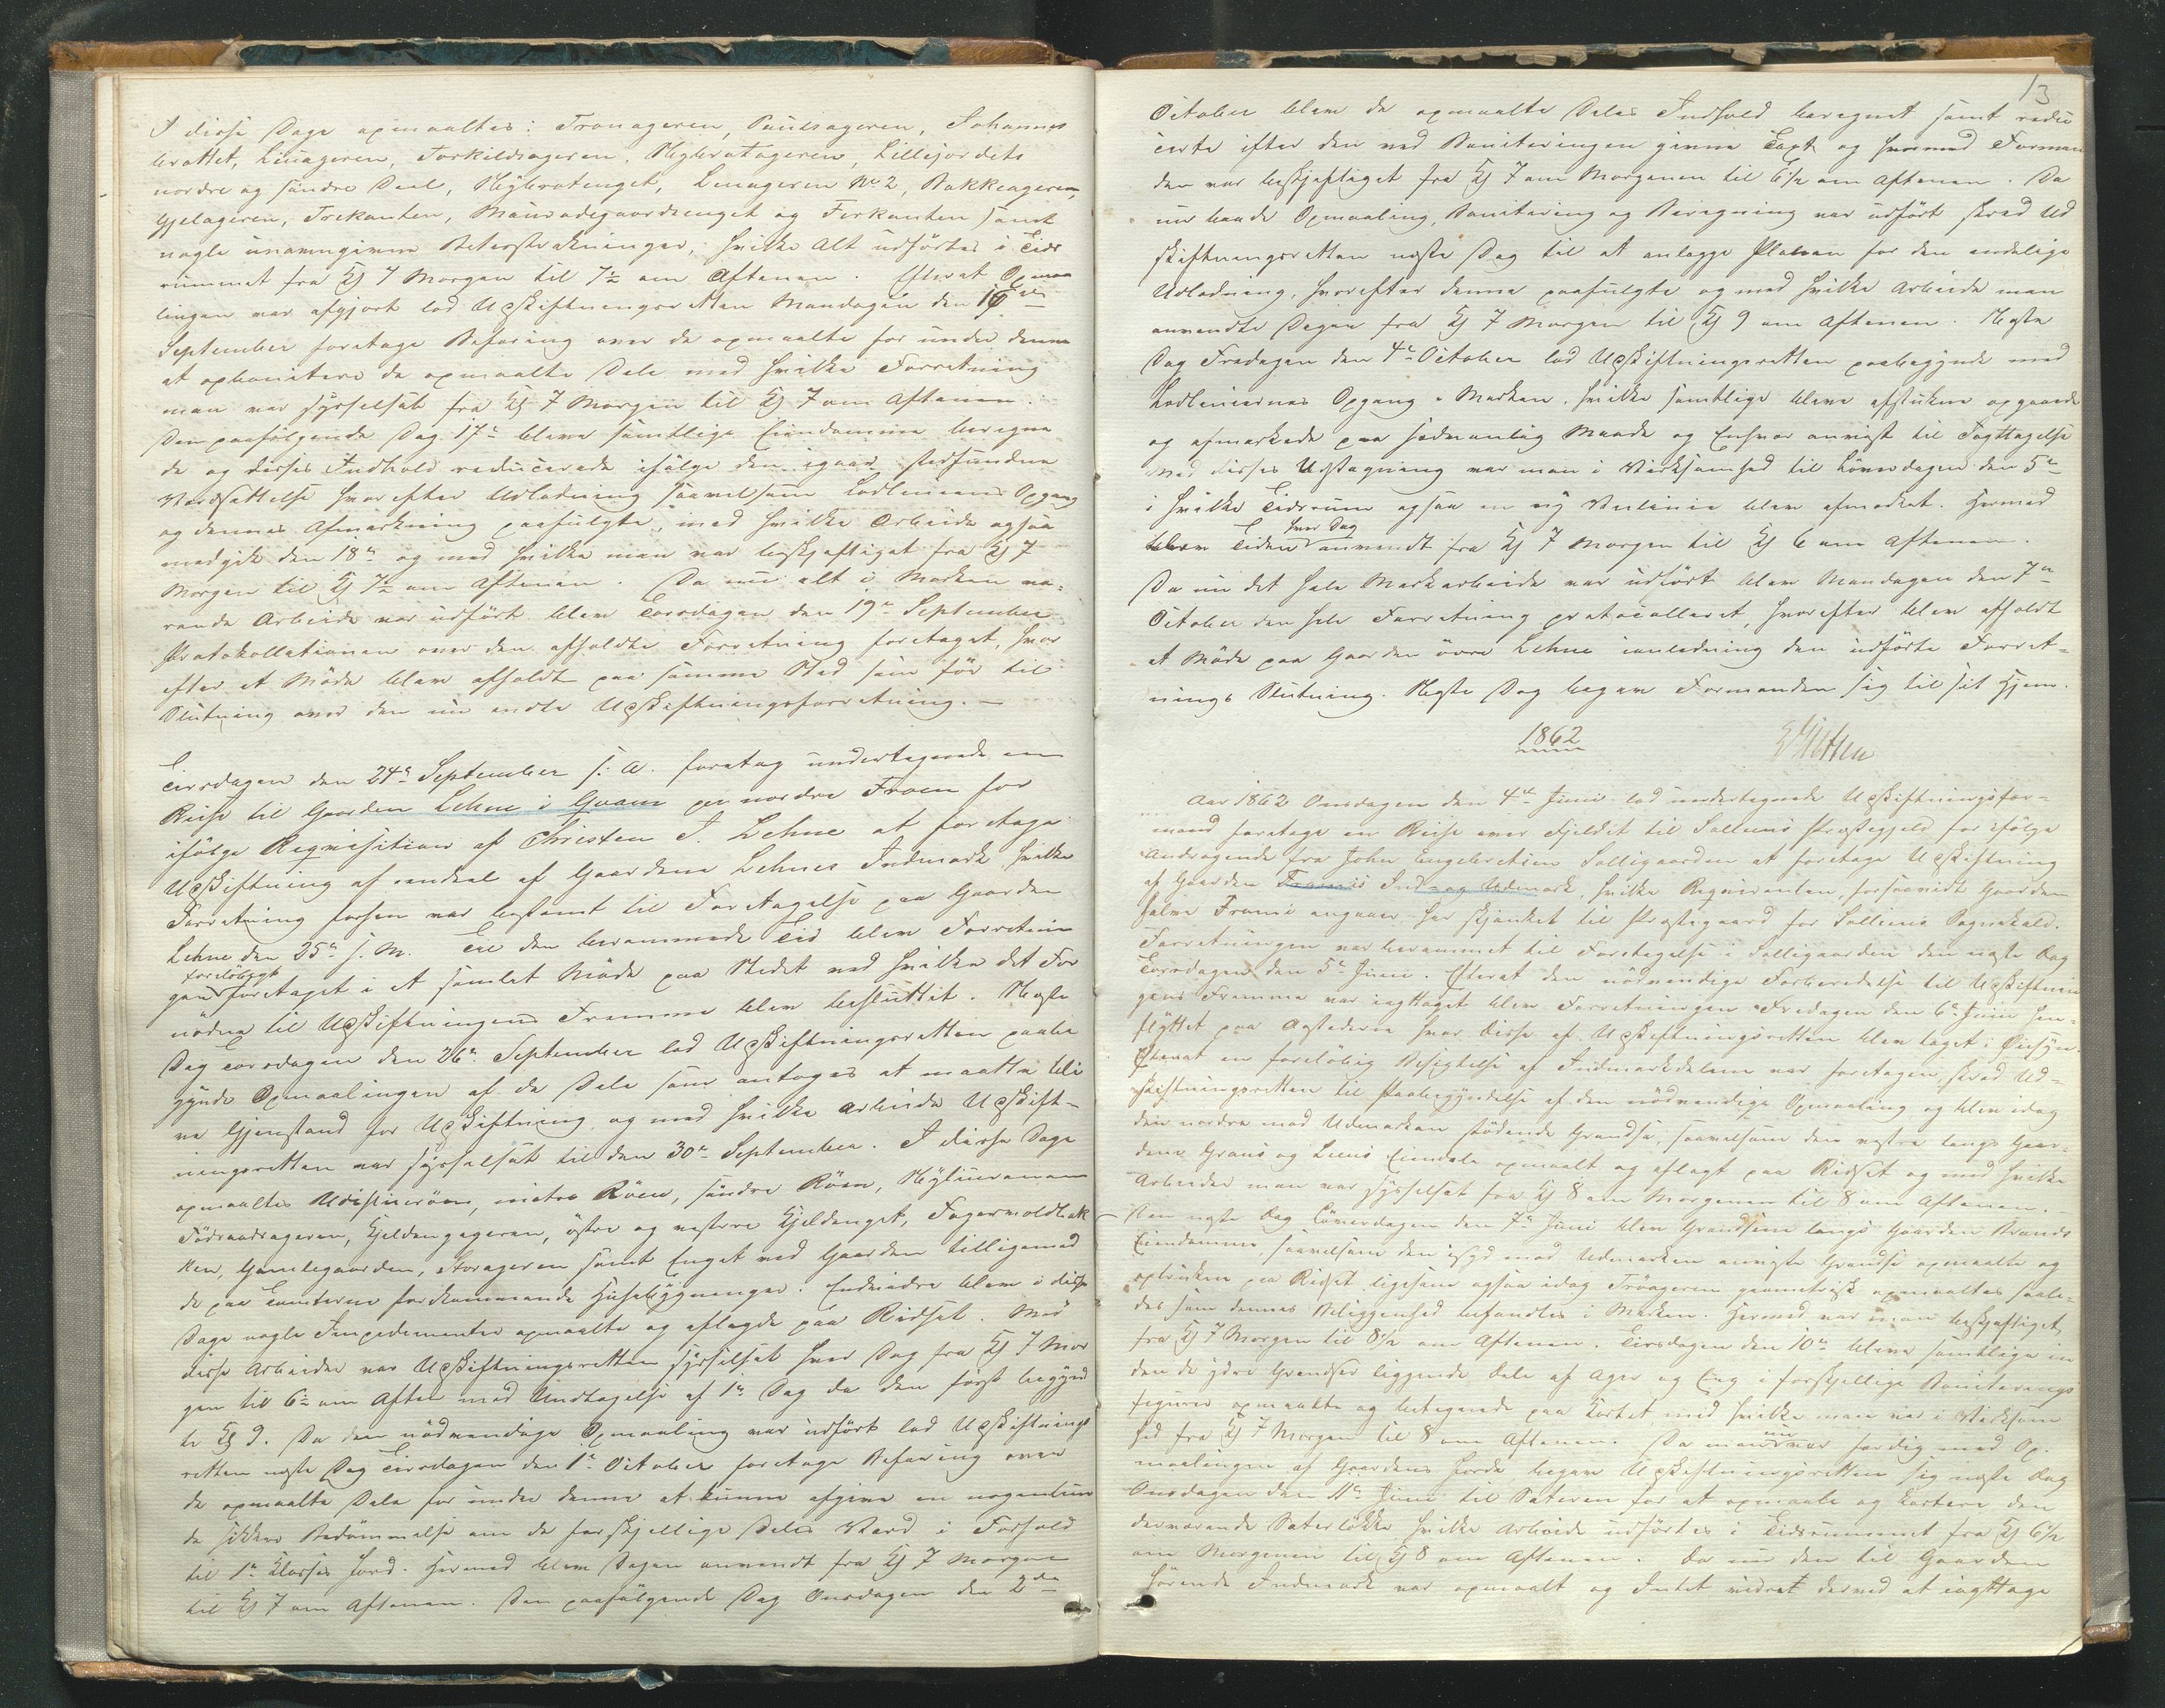 I disse Dage opmaaltes: Tronageren, Paulsageren, Johannes
brattet, Linageren, Torkildsageren, Nybrotageren, Lillejordets
nordre og søndre Deel, Nybrotenget, Linageren No 2, Bakkeageren,
Gjelageren, Trekanten, Maurodegaardsenget og Firkanten samt
nogle unavngivne Beterstrækninger, hvilke Alt udførtes i Tids
rummet fra Kl 7 Morgen til 7½ om Aftenen. Efterat Opmaa
lingen var afgjort lod Udskiftningsretten Mandagen den 16de
September foretage Befaring over de opmaalte for under denne
at opbonitere de opmaalte Dele med hvilke Forretning
man var sysselsat fra Kl 7 Morgen til Kl 7 om Aftenen.
Den paafølgende Dag 17de bleve samtlige Eiendomme beregne
de og disses Indhold reducerede ifølge den igaar stedfundne
Værdsættelse hvorefter Udlodning saavelsom Lodliniens Opgang
og dennes Afmærkning paafulgte, med hvilke Arbeide ogsaa
medgik den 18de og med hvilke man var beskjæftiget fra Kl 7
Morgen til Kl 7½ om Aftenen. Da nu alt i Marken væ-
rende Arbeide var udført blev Torsdagen den 19de September
Protokollationen over den afholdte Forretning foretaget, hvor
efter et Møde blev afholdt paa samme Sted som før til
Slutning over den nu endte Udskiftningsforretning. –
Tirsdagen den 24de September s. A. foretog undertegnede en
Reise til Gaarden Lehne i Qvam pr nordre Froen for
ifølge Reqvisition af Christen J. Lehne at foretage
Udskiftning af endeel af Gaardene Lehnes Indmark hvilke
Forretning forsen var bestemt til Foretagelse paa Gaarden
Lehne den 25de s. M. Til den berammede Tid blev Forretnin
gen foreløbigt foretaget i et samlet Møde paa Stedet ved hvilke det For
nødne til Udskiftningens Fremme blev besluttet. Næste
Dag Torsdagen den 26de September lod Udskiftningsretten paabe
gynde Opmaalingen af de Dele som antoges at maatte bli
ve Gjenstand for Udskiftning og med hvilke Arbeide Udskift-
ningsretten var sysselsat til den 30te September. I disse Dage
opmaaltes nedre Røen, søndre Røen,
Fødraadsageren, Kjeldengageren, østre og vestre Kjeldenget,
ken, Gamlegaarden, Storageren samt Enget ved Gaarden tilligemed
de paa Tomterne forekommende Husebygninger. Endvidere blev i disse
Dage nogle Impedimenter opmaalte og aflagde paa Ridset. Med
disse Arbeider var Udskiftningsretten sysselsat hver Dag fra Kl 7 Mor
gen til 6½ om Aften med Undtagelse af 1ste Dag da den først begynd
te Kl 9. Da den nødvendige Opmaaling var udført lod Udskiftnings
retten næste Dag Tirsdagen den 1ste October foretage Befaring over
de opmaalte Dele for under denne at kunne afgive en nogenlun
de sikker Bedømmelse om de forskjellige Deles Værd i Forhold
til 1ste Klasses Jord. Hermed blev Dagen anvendt fra Kl 7 Morgen
til Kl 7 om Aftenen. Den paafølgende Dag Onsdagen den 2den
13
October blev de opmaalte Deles Indhold beregnet samt redu
certe efter den ved Boniteringen givne Taxt og hvormed Forman
den var beskjæftiget fra Kl 7 om Morgenen til 6½ om Aftenen. Da
nu baade Opmaaling, Bonitering og Beregning var udført skred Ud
skiftningsretten næste Dag til at anlægge Planen for den endelige
Udlodning, hvorefter denne paafulgte og med hvilke Arbeide man
anvendte Dagen fra Kl 7 Morgen til Kl 9 om Aftenen. Næste
Dag Fredagen den 4de October lod Udskiftningsretten paabegynde med
Lodliniernes Opgang i Marken, hvilke samtlige bleve afstukne opgaaede
og afmærkede paa sædvanlig Maade og Enhver anvist til Iagttagelse
Med disses Udstagning var man i Virksomhed til Løverdagen den 5te
i hvilke Tidsrum ogsaa en ny Veilinie blev afmærket. Hermed
blev Tiden hver Dag anvendt fra Kl 7 Morgen til Kl 6 om Aftenen.
Da nu det hele Markarbeide var udført blev Mandagen den 7de
October den hele Forretning protocolleret, hvorefter blev afholdt
et Møde paa Gaarden øvre Lehne i anledning den udførte Forret-
nings Slutning. Næste Dag begav Formanden sig til sit Hjem.
1862
Aar 1862 Onsdagen den 4de Juni lod undertegnede Udskiftningsfor-
mand foretage en Reise over Fjeldet til Sollien Præstegjeld for ifølge
Andragende fra John Engebretsen Solligaarden at foretage Udskiftning
af Gaarden Framis Ind- og Udmark, hvilke Reqvirenten, forsaavidt Gaarden
halve Frami angaaer har skjænket til Præstegaard for Solliens Sognekald.
Forretningen var berammet til Foretagelse i Solligaarden den næste Dag
Torsdagen den 5te Juni. Efterat den nødvendige Forberedelse til Udskiftnin
gens Fremme var iagttaget blev Forretningen Fredagen den 6te Juni hen-
flyttet paa Aastederne hvor disse af Udskiftningsretten blev taget i Øiesyn.
Efterat en foreløbig Besigtelse af Indmarkdelene var foretagen, skred Ud-
skiftningsretten til Paabegyndelse af den nødvendige Opmaaling og blev idag
den nordre mod Udmarken stødende Grændse, saavelsom den vestre langs Gaar-
dene og Eiendele opmaalt og aflagt paa Ridset og med hvilke
Arbeider man var sysselsat fra Kl 8 om Morgenen til 8 om Aftenen. –
Den næste Dag Løverdagen den 7de Juni blev Grændsen langs Gaarden Brands
Eiendomme, saavelsom den i syd mod Udmarken anviste Grændse opmaalte og
optrukne paa Ridset ligesom ogsaa idag Trøageren geometrisk opmaaltes saale-
des som dennes Beliggenhed befandtes i Marken. Hermed var man beskjæftiget
fra Kl 7 Morgen til 8½ om Aftenen. Tirsdagen den 10de bleve samtlige in
den de ydre Grændser liggende Dele af Ager og Eng i forskjellige Boniterings
figurer opmaalte og betegnede paa Kartet, med hvilke man var i Virksom
hed fra Kl 7 Morgen til 8 om Aftenen. Da man nu var færdig med Op-
maalingen af Gaardens Jorde, begav Udskiftningsretten sig næste Dag
Onsdagen den 11te Juni til Sæteren for at opmaale og kartere den
derværende Sæterløkke hvilke Arbeide udførtes i Tidsrummet fra Kl 6½
om Morgenen til Kl 8 om Aftenen. Da nu den til Gaarden
hørende Indmark var opmaalt og Intet videre derved at iagttage